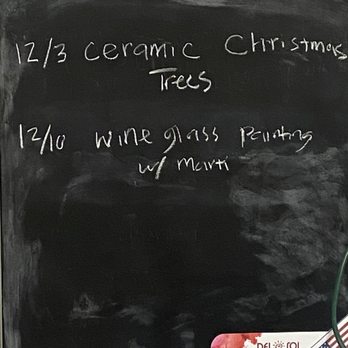 12/3 Ceramic Christmas
Trees
12/10 wine glass painting
w/ Marti
DEL SOL